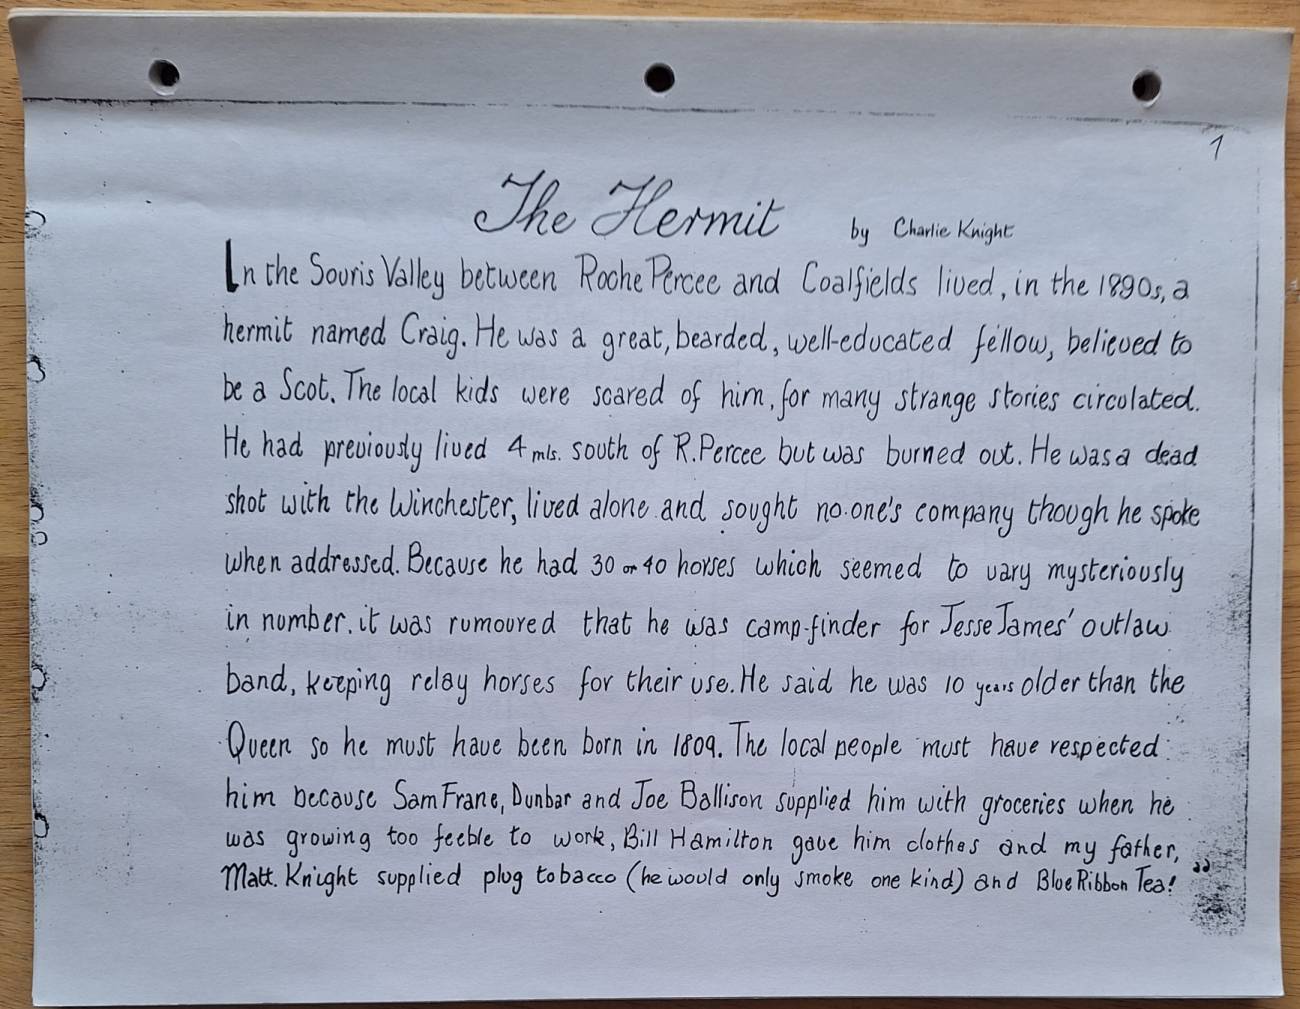 1
The Hermit by Charlie Knight
In the Souris Valley between Roche Percee and Coalfields lived, in the 1890s, a
hermit named Craig. He was a great, bearded, well-educated fellow, believed to
be a Scot. The local kids were scared of him, for many strange stories circulated.
He had previously lived 4 mls. south of R. Percee but was burned out. He was a dead
shot with the Winchester, lived alone and sought no-one's company though he spoke
when addressed. Because he had 30 or 40 horses which seemed to vary mysteriously
in number, it was rumoured that he was camp-finder for Jesse James' outlaw
band, keeping relay horses for their use. He said he was 10 years older than the
Queen so he must have been born in 1809. The local people must have respected
him because Sam Frane, Dunbar and Joe Ballison supplied him with groceries when he
was growing too feeble to work, Bill Hamilton gave him clothes and my father,
Matt. Knight supplied plug tobacco (he would only smoke one kind) and Blue Ribbon Tea! "